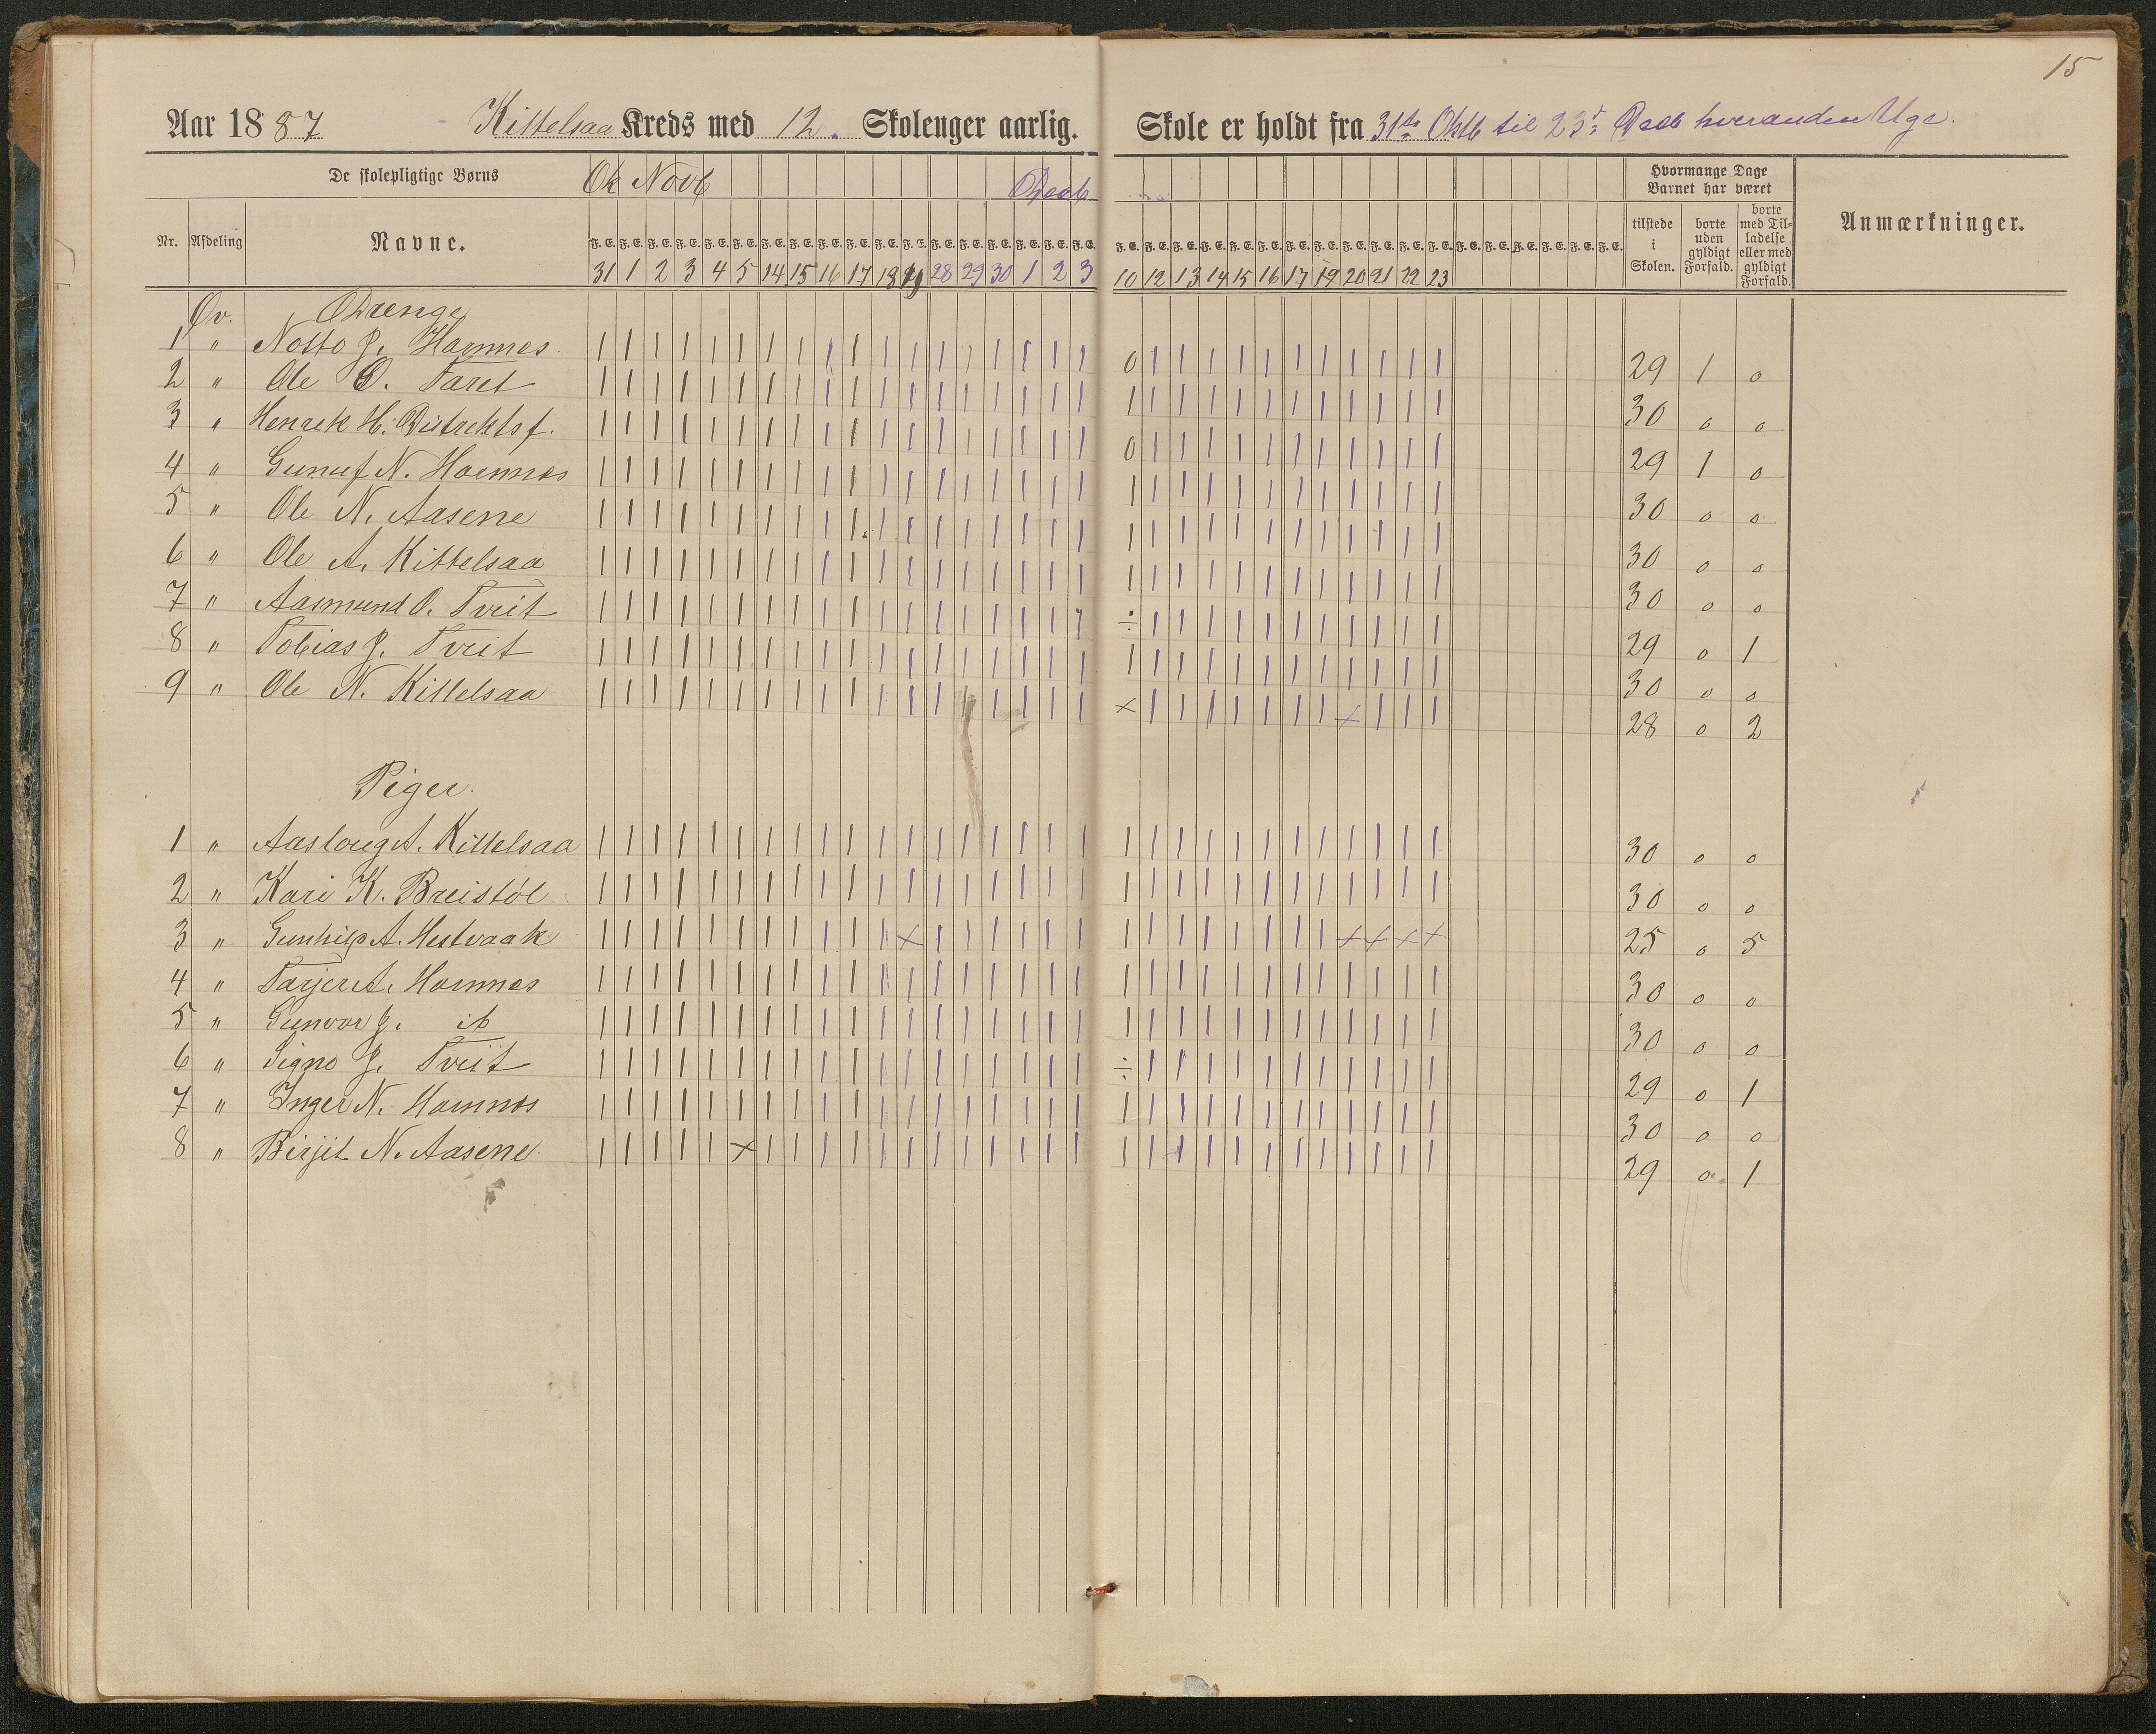 15
Aar 1887 Kittelsaa Kreds med 12. Skoleuger aarlig. Skole er holdt fra 31te Oktb til 23de Decb hveranden Uge.
De skolepligtige Børns Ok Novb Decb Hvormange Dage Barnet har været
Nr. Afdeling Navne. F. E. F. E. F. E. F. E. F. E. F. E. F. E. F. E. F. E. F. E. F. E. F. E. F. E. F. E. F. E. F. E. F. E. F. E. F. E. F. E. F. E. F. E. F. E. F. E. F. E. F. E. F. E. F. E. F. E. F. E. F. E. F. E. F. E. F. E. F. E. F. E. tilstede i Skolen. borte uden gyldigt Forfald. borte med Tilladelse eller med gyldigt Forfald. Anmærkninger.
31 1 2 3 4 5 14 15 16 17 18 19 28 29 30 1 2 3 10 12 13 14 15 16 17 19 20 21 22 23
Øv. Drenge
1 " Notto J. Hamnes. | | | | | | | | | | | | | | | | | | 0 | | | | | | | | | | | 29 1 0
2 " Ole O. Taret | | | | | | | | | | | | | | | | | | | | | | | | | | | | | | 30 0 0
3 " Henrek H. | | | | | | | | | | | | | | | | | | 0 | | | | | | | | | | | 29 1 0
4 " Gunuf N. Hamnes | | | | | | | | | | | | | | | | | | | | | | | | | | | | | | 30 0 0
5 " Ole N. Aasene | | | | | | | | | | | | | | | | | | | | | | | | | | | | | | 30 0 0
6 " Ole A. Kittelsaa | | | | | | | | | | | | | | | | | | | | | | | | | | | | | | 30 0 0
7 " Aasmund O. Tveit | | | | | | | | | | | | | | | | | | ÷ | | | | | | | | | | | 29 0 1
8 " Tobias J. Tveit | | | | | | | | | | | | | | | | | | | | | | | | | | | | | | 30 0 0
9 " Ole N. Kittelsaa | | | | | | | | | | | | | | | | | | × | | | | | | | × | | | 28 0 2
Piger.
1 " Aaslaug A. Kittelsaa | | | | | | | | | | | | | | | | | | | | | | | | | | | | | | 30 0 0
2 " Kari K. Breistöl | | | | | | | | | | | | | | | | | | | | | | | | | | | | | | 30 0 0
3 " Gunhild A. Hestvaak | | | | | | | | | | | × | | | | | | | | | | | | | | × × × × 25 0 5
4 " Tarjer A. Hamnes | | | | | | | | | | | | | | | | | | | | | | | | | | | | | | 30 0 0
5 " Gunvor J. ib | | | | | | | | | | | | | | | | | | | | | | | | | | | | | | 30 0 0
6 " Signo J. Tveit | | | | | | | | | | | | | | | | | | ÷ | | | | | | | | | | | 29 0 1
7 " Inger N. Hamnes | | | | | | | | | | | | | | | | | | | | | | | | | | | | | | 30 0 0
8 " Birjit N. Aasene. | | | | | × | | | | | | | | | | | | | | | | | | | | | | | | 29 0 1